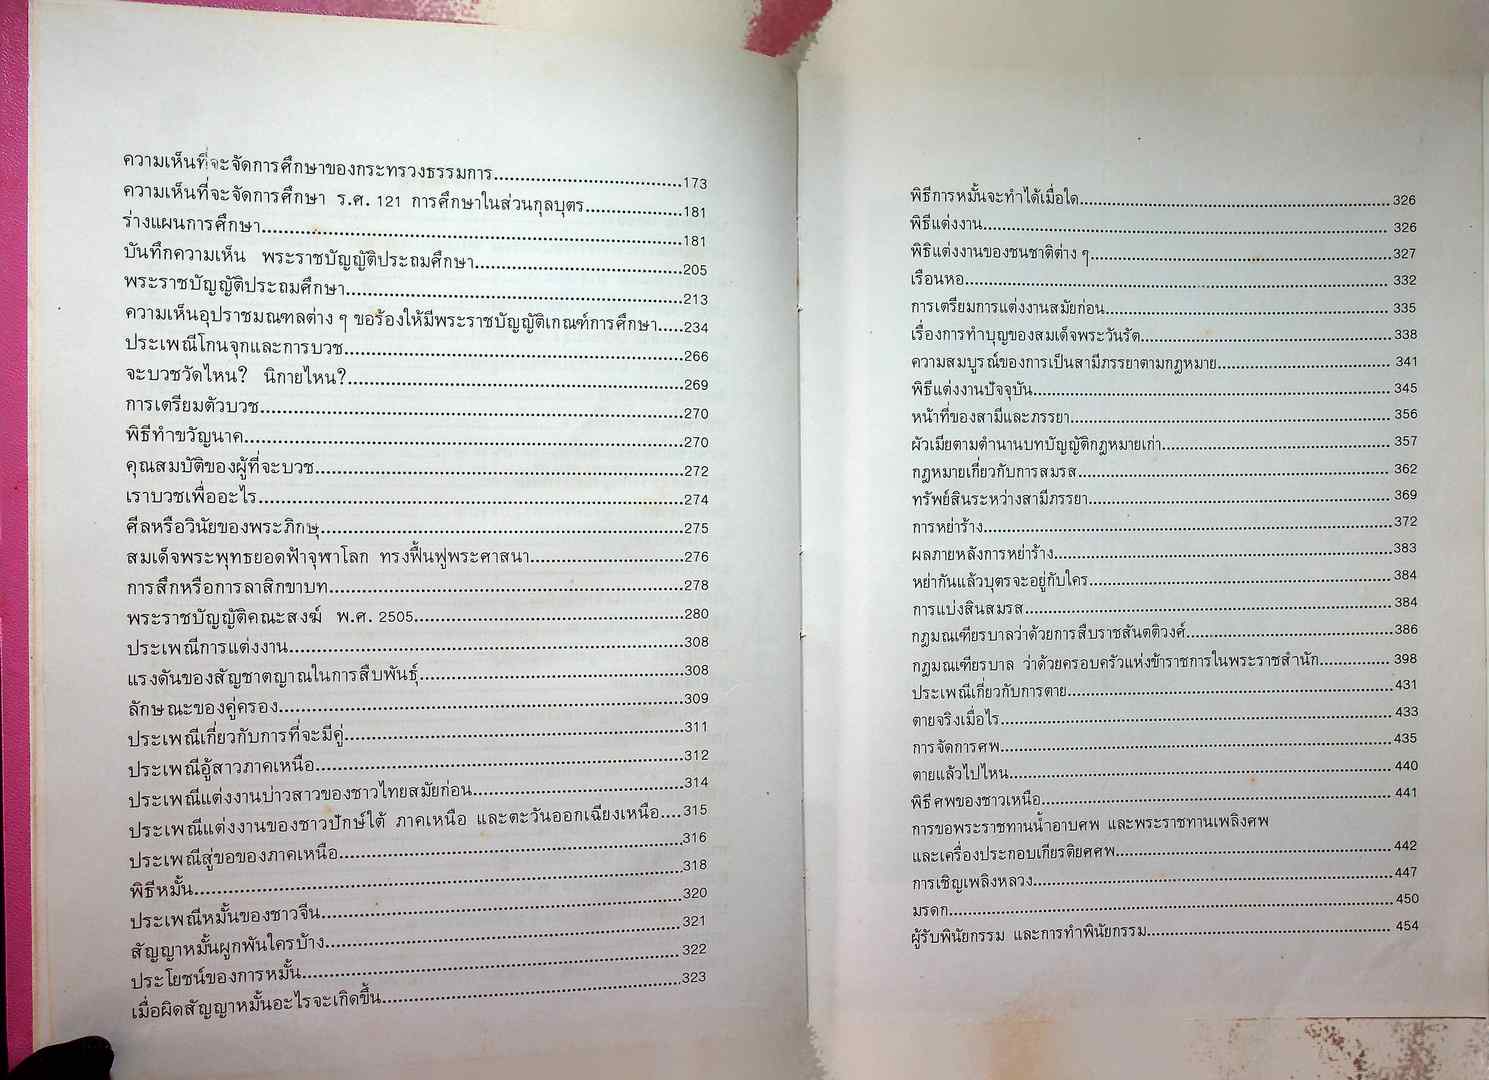 ความเห็นที่จะจัดการศึกษาของกระทรวงธรรมการ....................................173
ความเห็นที่จะจัดการศึกษา ร.ศ. 121 การศึกษาในส่วนกุลบุตร..................181
ร่างแผนการศึกษา..............................................................................181
บันทึกความเห็น พระราชบัญญัติประถมศึกษา.......................................205
พระราชบัญญัติประถมศึกษา...............................................................213
ความเห็นอุปราชมณฑลต่าง ๆ ขอร้องให้มีพระราชบัญญัติเกณฑ์การศึกษา.....234
ประเพณีโกนจุกและการบวช...............................................................266
จะบวชวัดไหน? นิกายไหน?...............................................................269
การเตรียมตัวบวช..............................................................................270
พิธีทำขวัญนาค.................................................................................270
คุณสมบัติของผู้ที่จะบวช....................................................................272
เราบวชเพื่ออะไร..............................................................................274
ศีลหรือวินัยของพระภิกษุ...................................................................275
สมเด็จพระพุทธยอดฟ้าจุฬาโลก ทรงฟื้นฟูพระศาสนา............................276
การสึกหรือการลาสิกขาบท.................................................................278
พระราชบัญญัติคณะสงฆ์ พ.ศ. 2505..................................................280
ประเพณีการแต่งงาน.........................................................................308
แรงดันของสัญชาตญาณในการสืบพันธุ์..................................................308
ลักษณะของคู่ครอง...........................................................................309
ประเพณีเกี่ยวกับการที่จะมีคู่..............................................................311
ประเพณีอู้สาวภาคเหนือ....................................................................312
ประเพณีแต่งงานบ่าวสาวของชาวไทยสมัยก่อน.......................................314
ประเพณีแต่งงานของชาวปักษ์ใต้ ภาคเหนือ และตะวันออกเฉียงเหนือ....315
ประเพณีสู่ขอของภาคเหนือ.................................................................316
พิธีหมั้น...........................................................................................318
ประเพณีหมั้นของชาวจีน....................................................................320
สัญญาหมั้นผูกพันใครบ้าง..................................................................321
ประโยชน์ของการหมั้น.......................................................................322
เมื่อผิดสัญญาหมั้นอะไรจะเกิดขึ้น........................................................323
พิธีการหมั้นจะทำได้เมื่อใด.................................................................326
พิธีแต่งงาน......................................................................................326
พิธีแต่งงานของชนชาติต่าง ๆ..............................................................327
เรือนหอ..........................................................................................332
การเตรียมการแต่งงานสมัยก่อน..........................................................335
เรื่องการทำบุญของสมเด็จพระวันรัต.....................................................338
ความสมบูรณ์ของการเป็นสามีภรรยาตามกฎหมาย...................................341
พิธีแต่งงานปัจจุบัน...........................................................................345
หน้าที่ของสามีและภรรยา...................................................................356
ผัวเมียตามตำนานบทบัญญัติกฎหมายเก่า..............................................357
กฎหมายเกี่ยวกับการสมรส.................................................................362
ทรัพย์สินระหว่างสามีภรรยา...............................................................369
การหย่าร้าง.....................................................................................372
ผลภายหลังการหย่าร้าง.....................................................................383
หย่ากันแล้วบุตรจะอยู่กับใคร..............................................................384
การแบ่งสินสมรส..............................................................................384
กฎมณเฑียรบาลว่าด้วยการสืบราชสันตติวงศ์..........................................386
กฎมณเฑียรบาล ว่าด้วยครอบครัวแห่งข้าราชการในพระราชสำนัก...............398
ประเพณีเกี่ยวกับการตาย...................................................................431
ตายจริงเมื่อไร..................................................................................433
การจัดการศพ..................................................................................435
ตายแล้วไปไหน................................................................................440
พิธีศพของชาวเหนือ..........................................................................441
การขอพระราชทานน้ำอาบศพ และพระราชทานเพลิงศพ
และเครื่องประกอบเกียรติยศศพ..........................................................442
การเชิญเพลิงหลวง...........................................................................447
มรดก..............................................................................................450
ผู้รับพินัยกรรม และการทำพินัยกรรม...................................................454